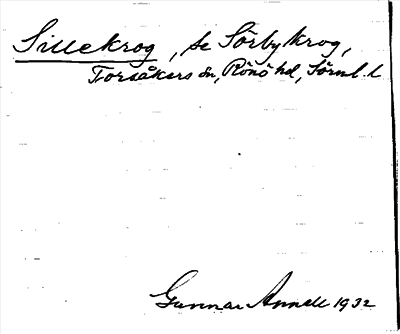 Sillekrog, se Sörbykrog,
Torsåkers sn, Rönö hd, Sörml. l
Gunnar Annell 1932